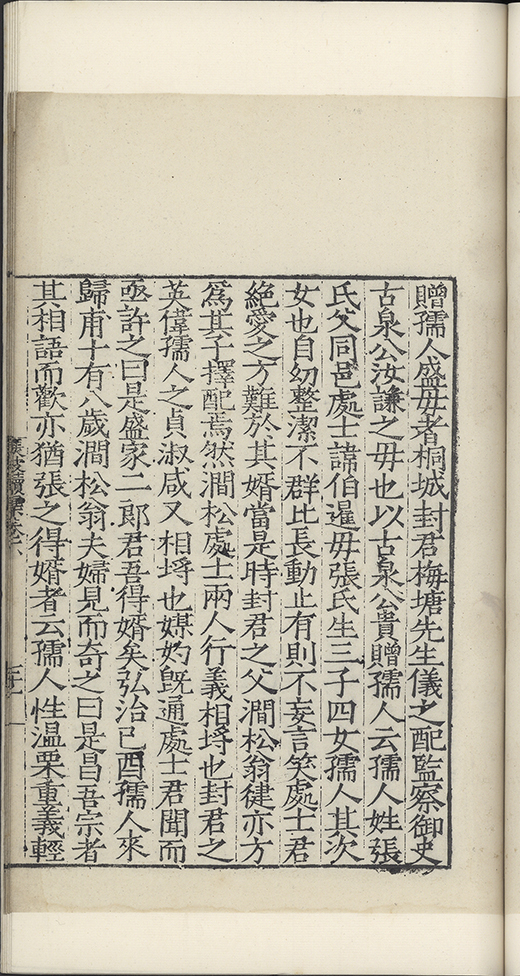 贈孺人盛母者桐城封君梅塘先生儀之配監察御史
古泉公汝謙之母也以古泉公貴贈孺人云孺人姓張
氏父同邑處士諱伯暹母張氏生三子四女孺人其次
女也自幼整潔不群比長動止有則不妄言笑處士君
絶愛之方難於其婿當是時封君之父澗松翁健亦方
爲其子擇配焉然澗松處士兩人行義相埒也封君之
英偉孺人之貞淑咸又相埒也媒妁旣通處士君聞而
亟許之曰是盛家二郎君吾得婿矣弘治己酉孺人來
歸甫十有八歲澗松翁夫婦見而奇之曰是昌吾宗者
其相語而歡亦猶張之得婿者云孺人性溫栗重義輕